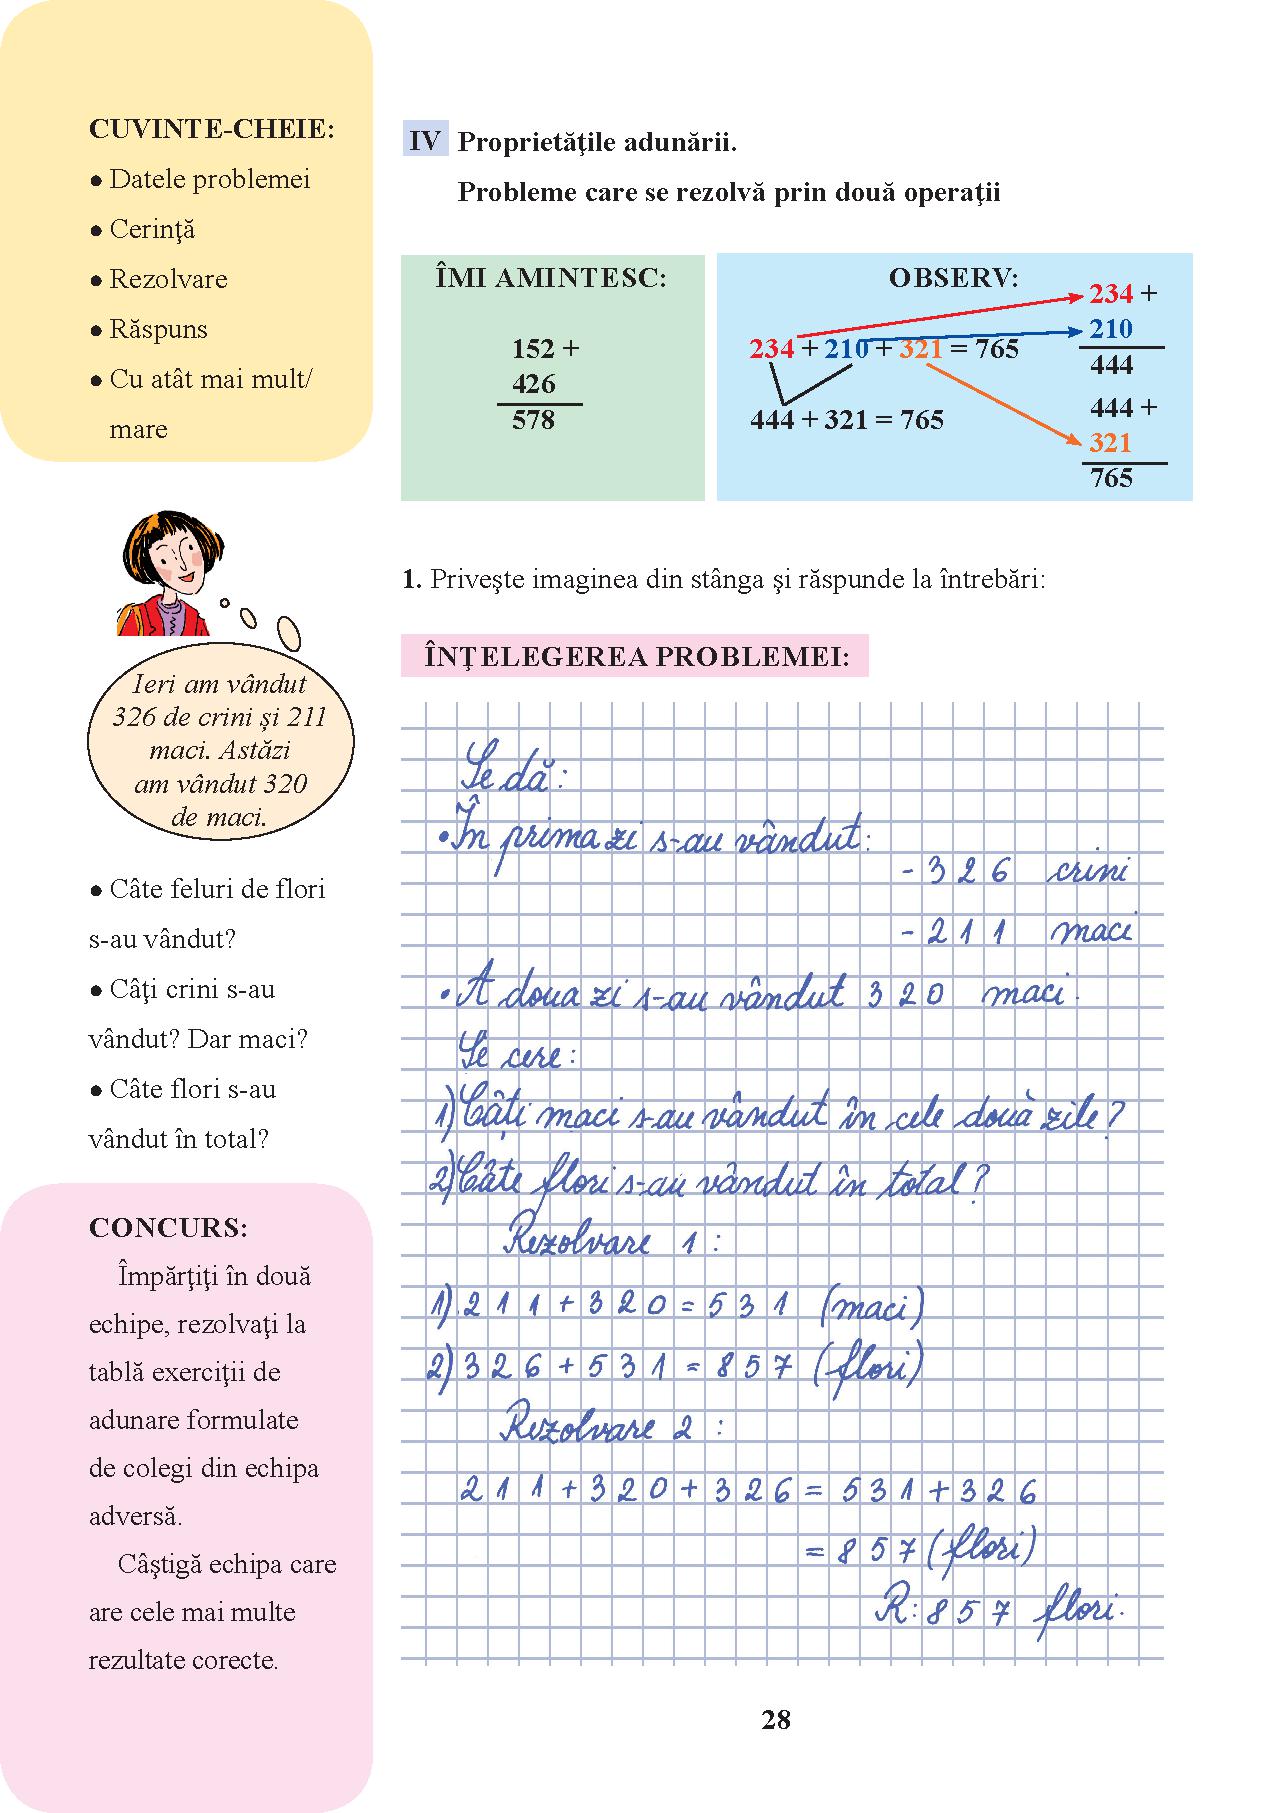 CUVINTE-CHEIE:
● Datele problemei
● Cerinţă
● Rezolvare
● Răspuns
● Cu atât mai mult/
mare
IV Proprietăţile adunării.
Probleme care se rezolvă prin două operaţii
ÎMI AMINTESC:
152 +
426
578
OBSERV:
234 + 210 + 321 = 765
444 + 321 = 765
234 +
210
444
444 +
321
765
Ieri am vândut
326 de crini și 211
maci. Astăzi
am vândut 320
de maci.
● Câte feluri de flori
s-au vândut?
● Câţi crini s-au
vândut? Dar maci?
● Câte flori s-au
vândut în total?
CONCURS:
Împărţiţi în două
echipe, rezolvaţi la
tablă exerciţii de
adunare formulate
de colegi din echipa
adversă.
Câştigă echipa care
are cele mai multe
rezultate corecte.
1. Priveşte imaginea din stânga şi răspunde la întrebări:
ÎNŢELEGEREA PROBLEMEI:
Se dă:
• În prima zi s-au vândut:
- 326 crini
- 211 maci
• A doua zi s-au vândut 320 maci.
Se cere:
1) Câți maci s-au vândut în cele două zile?
2) Câte flori s-au vândut în total?
Rezolvare 1:
1) 211 + 320 = 531 (maci)
2) 326 + 531 = 857 (flori)
Rezolvare 2:
211 + 320 + 326 = 531 + 326
= 857 (flori)
R: 857 flori.
28